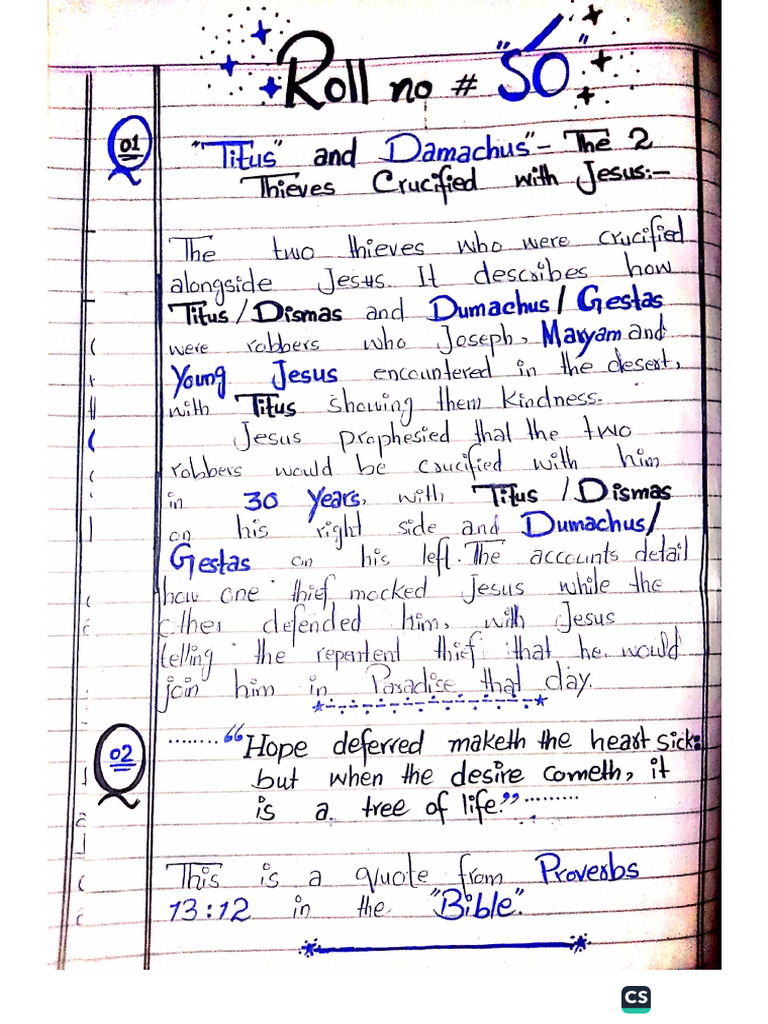 Roll no # "50"
01
"Titus" and Damachus"- The 2
Thieves Crucified with Jesus:-
The two thieves who were crucified
alongside Jesus. It describes how
Titus/Dismas and Dumachus/Gestas
were robbers who Joseph, Maryam and
Young Jesus encountered in the desert,
with Titus showing them kindness.
Jesus prophesied that the two
robbers would be crucified with him
in 30 Years, with Titus/Dismas
on his right side and Dumachus/
Gestas on his left. The accounts detail
how one thief mocked Jesus while the
other defended him, with Jesus
telling the repentent thief that he would
join him in Paradise that day.
02
........"Hope deferred maketh the heart sick:
but when the desire cometh, it
is a tree of life.".........
This is a quote from Proverbs
13:12 in the "Bible".
CS